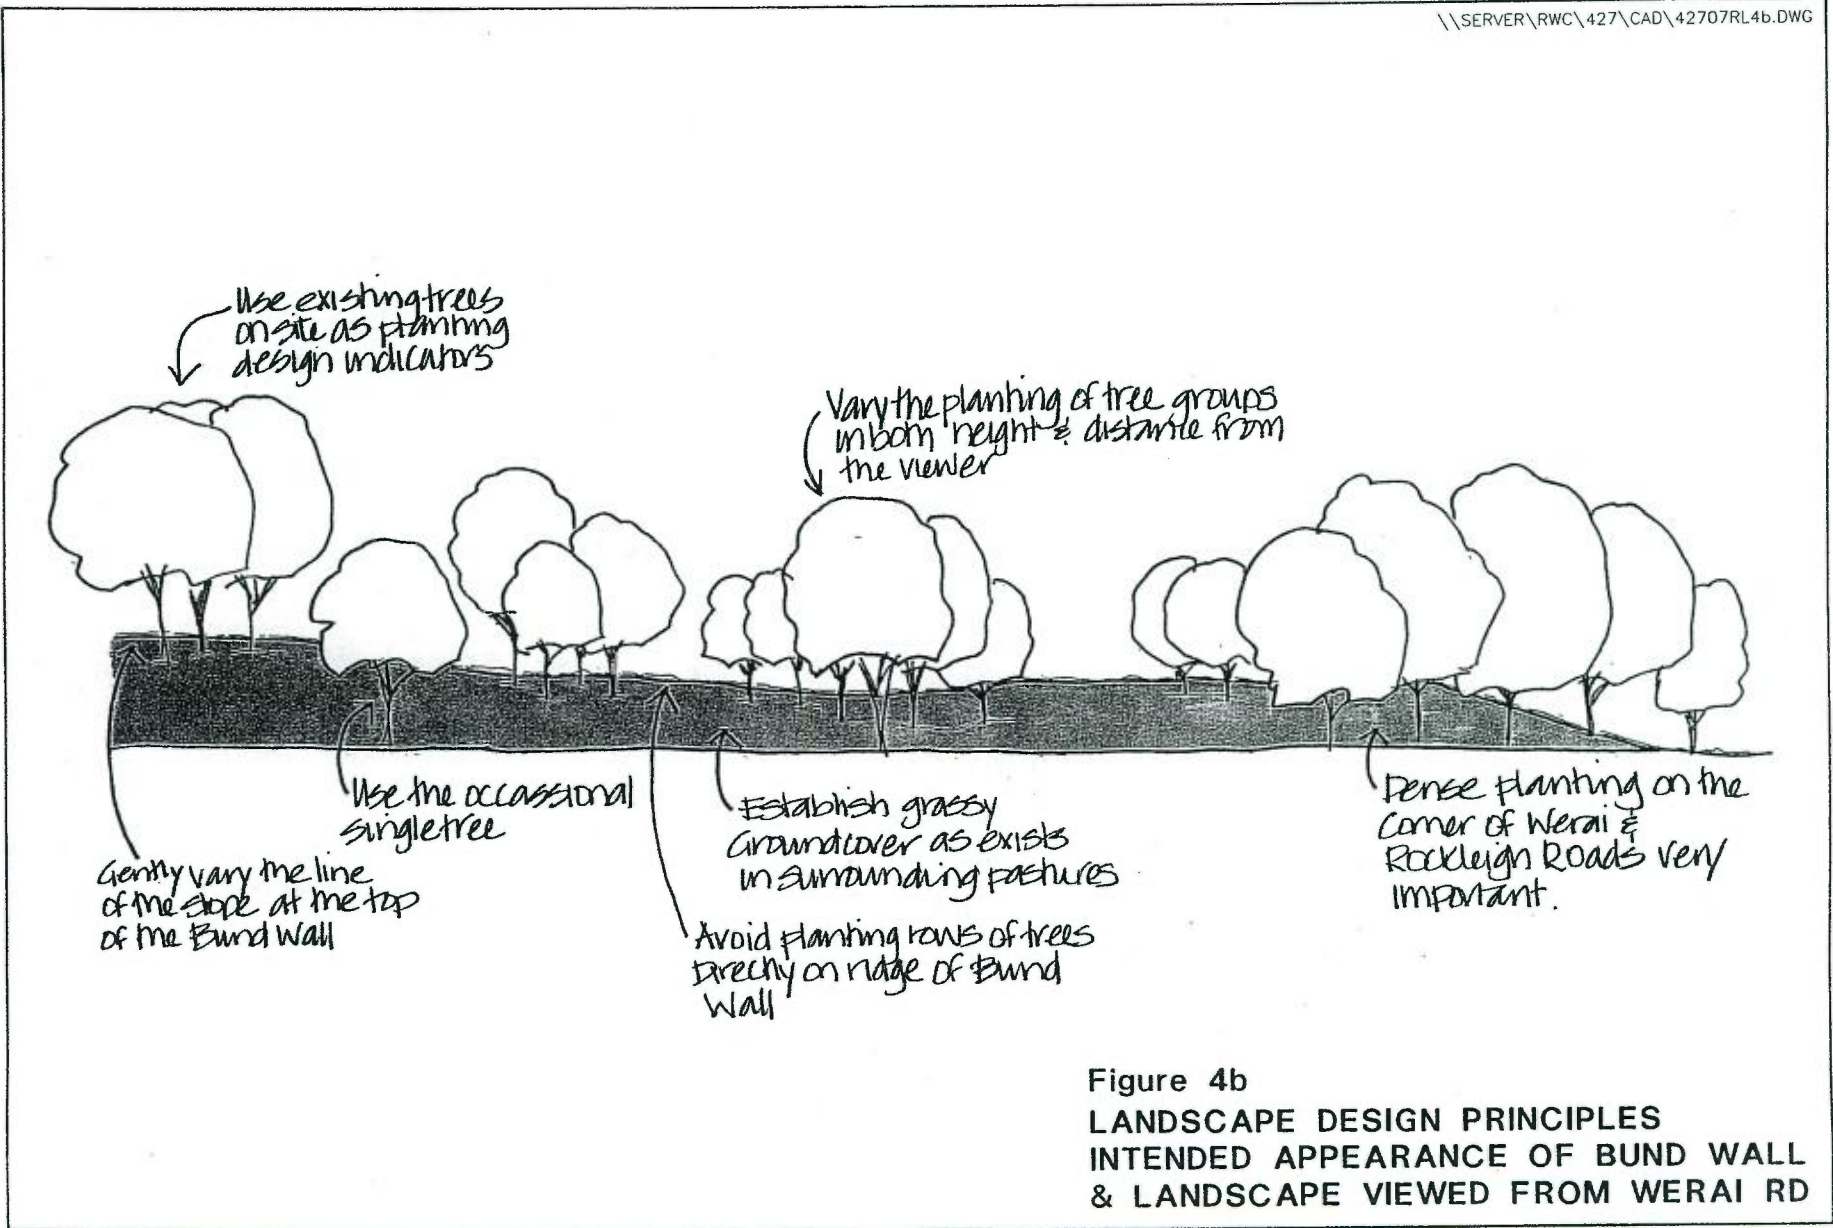 \\SERVER\RWC\427\CAD\42707RL4b.DWG
Use existing trees
on site as planting
design indicators
Vary the planting of tree groups
in both height & distance from
the viewer
Use the occassional
single tree
Gently vary the line
of the slope at the top
of the Bund Wall
Establish grassy
Groundcover as exists
in surrounding pastures
Avoid planting rows of trees
Directly on ridge of Bund
Wall
Dense planting on the
Corner of Werai &
Rockleigh Roads very
important.
Figure 4b
LANDSCAPE DESIGN PRINCIPLES
INTENDED APPEARANCE OF BUND WALL
& LANDSCAPE VIEWED FROM WERAI RD